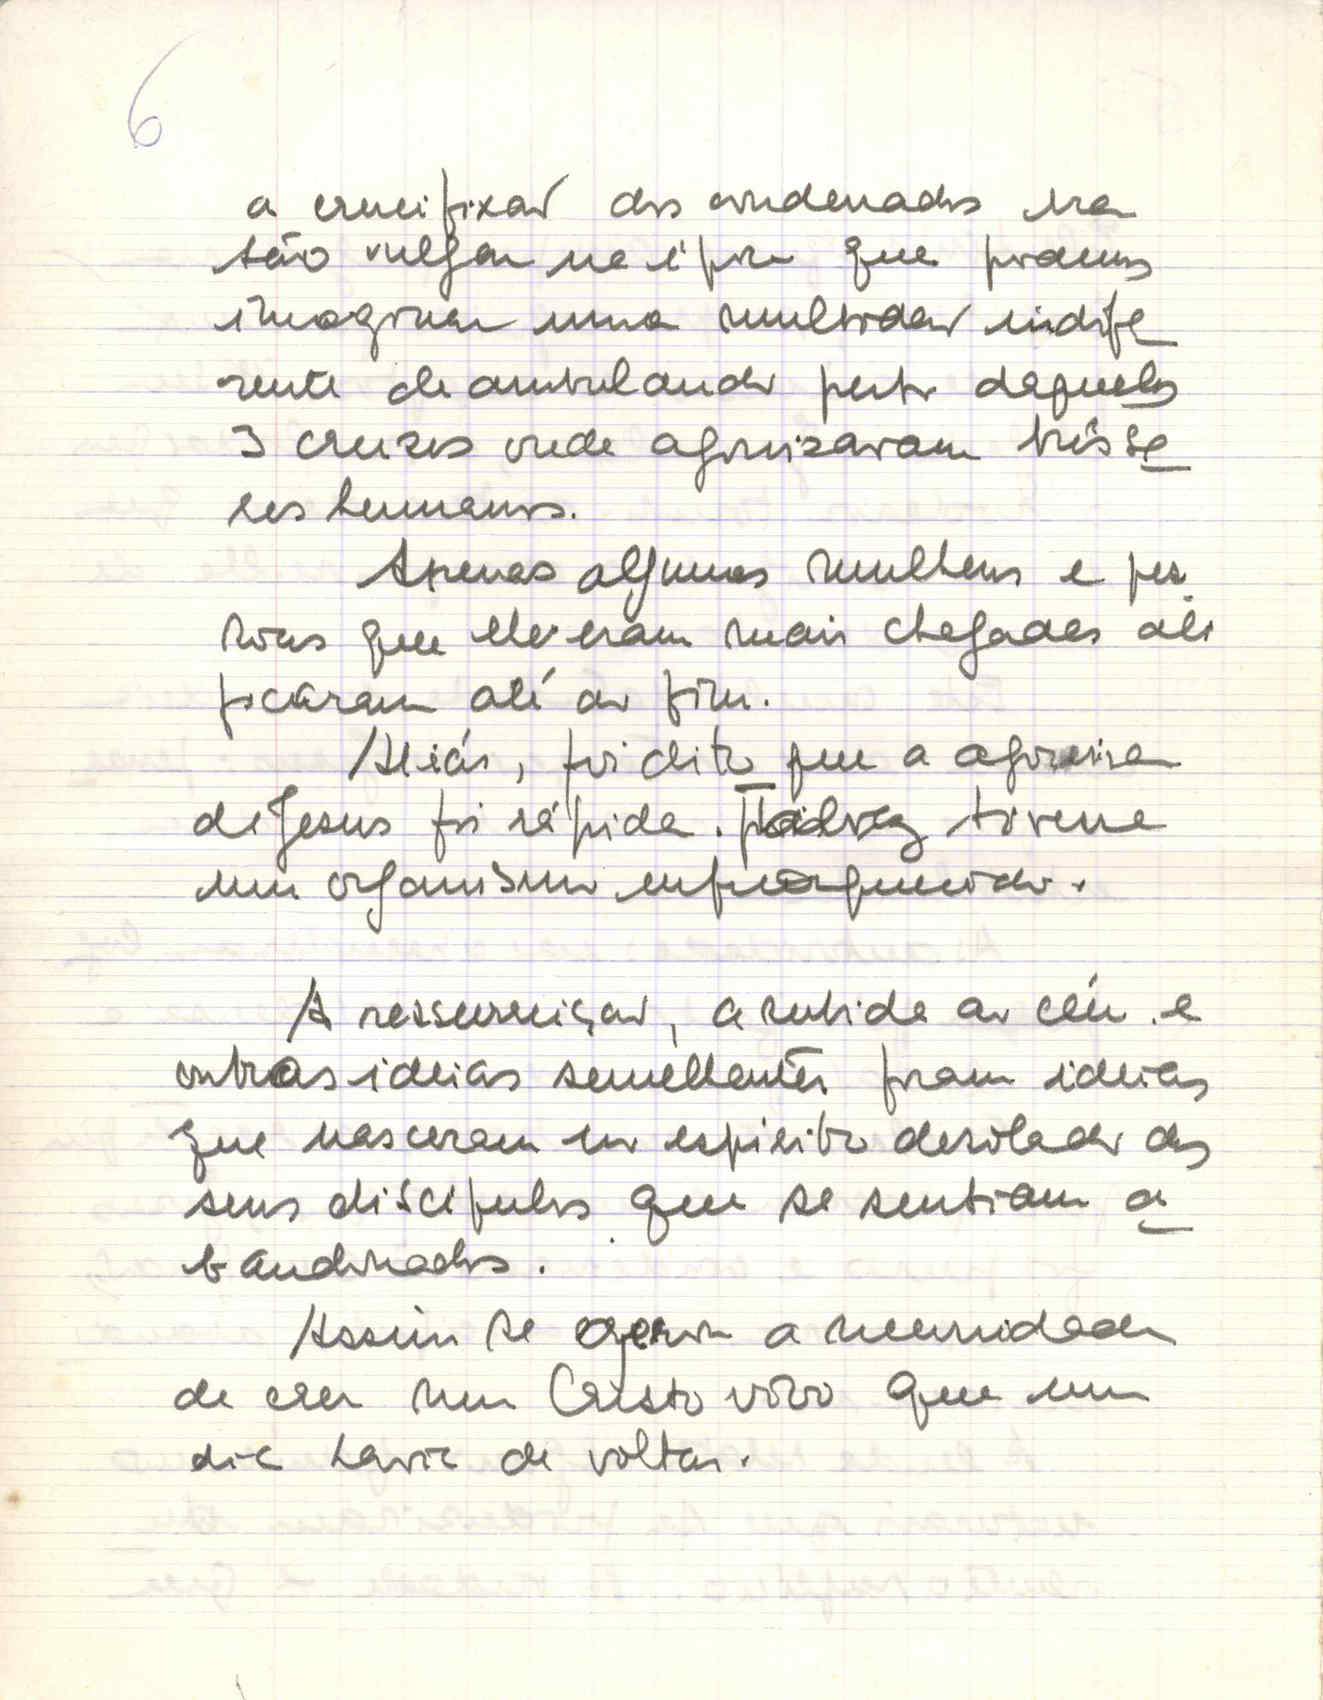 6
a crucifixão dos condenados era
tão vulgar na época que podemos
imaginar uma multidão indife
rente deambulando perto daquelas
3 cruzes onde agonizavam três se
res humanos.
Apenas algumas mulheres e pes
soas que lhe eram mais chegadas ali
ficaram até ao fim.
Aliás, foi dito que a agonia
de Jesus foi rápida. Talvez tivesse
um organismo enfraquecido.
A ressurreição, a subida ao céu e
outras ideias semelhantes foram ideias
que nasceram no espírito desolado dos
seus discípulos que se sentiam a
bandonados.
Assim se gerou a necessidade
de crer num Cristo vivo que um
dia havia de voltar.